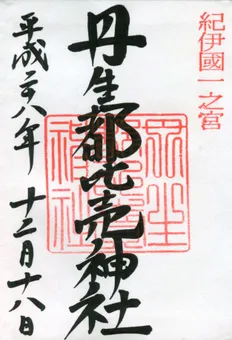 紀伊國一之宮
丹生都比売神社
平成二八年 十二月十八日